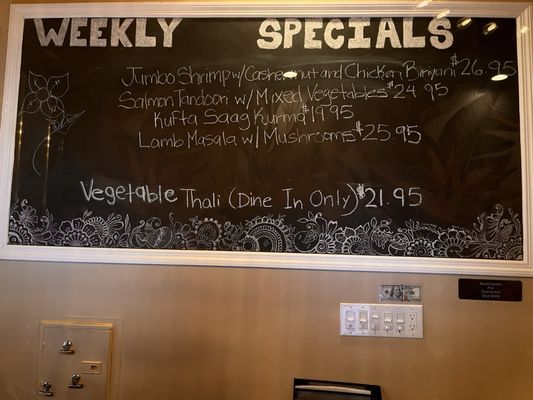 WEEKLY SPECIALS
Jumbo Shrimp w/ Cashewnut and Chicken Biriyani $26.95
Salmon Tandoori w/ Mixed Vegetables $24.95
Kufta Saag Kurma $19.95
Lamb Masala w/ Mushrooms $25.95
Vegetable Thali (Dine In Only) $21.95
Restrooms
For
Customer
Use Only